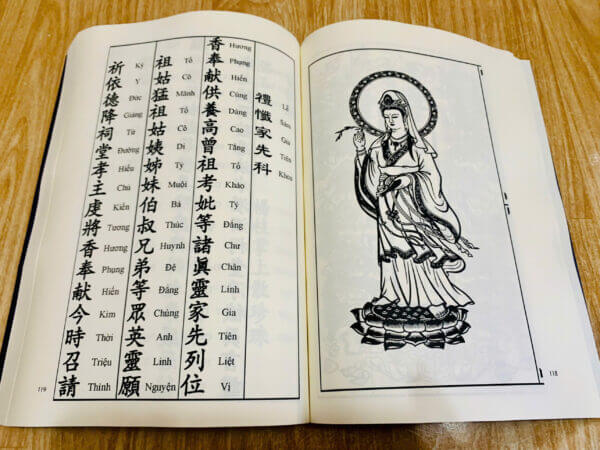 118
禮懺家先科
Lễ Sám Gia Tiên Khoa
香奉献供養高曾祖考妣等諸眞靈家先列位
Hương Phụng Hiến Cúng Dàng Cao Tằng Tổ Khảo Tỷ Đẳng Chư Chân Linh Gia Tiên Liệt Vị
祖姑猛祖姑姨姊妹伯叔兄弟等眾英靈願
Tổ Cô Mãnh Tổ Cô Di Tỷ Muội Bá Thúc Huynh Đệ Đẳng Chúng Anh Linh Nguyện
祈依德降祠堂孝主虔將香奉献今時召請
Kỳ Y Đức Giáng Từ Đường Hiếu Chủ Kiền Tương Hương Phụng Hiến Kim Thời Triệu Thỉnh
119